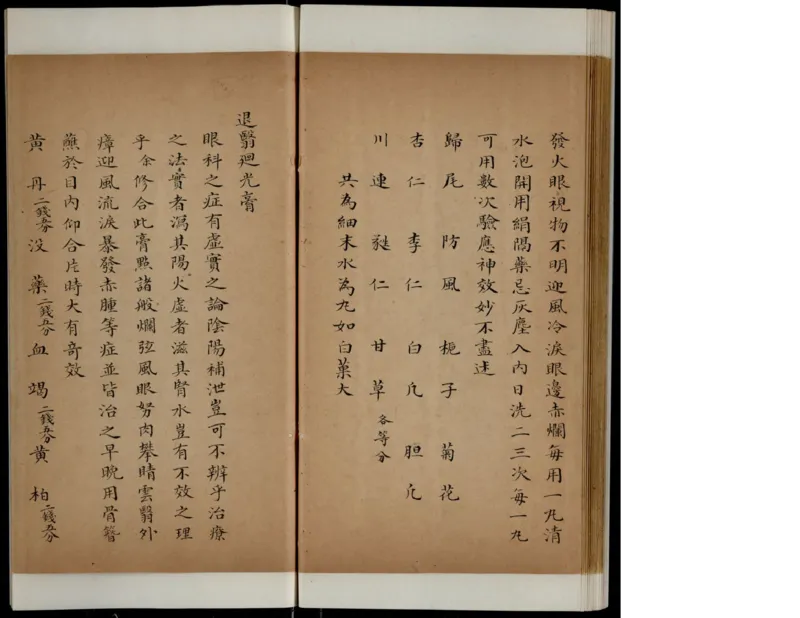 發火眼視物不明迎風冷淚眼邊赤爛每用一丸清
水泡開用絹隔藥忌灰塵入內日洗二三次每一丸
可用數次驗應神效妙不盡述
歸尾 防風 梔子 菊花
杏仁 李仁 白凡 胆凡
川連 蕤仁 甘草 各等分
共為細末水為丸如白菓大
退翳廻光膏
眼科之症有虛實之論陰陽補泄豈可不辨乎治療
之法實者瀉其陽火虛者滋其腎水豈有不效之理
乎余修合此膏點諸般爛弦風眼努肉攀睛雲翳外
瘴迎風流淚暴發赤腫等症並皆治之早晚用骨簪
蘸於目內仰合片時大有奇效
黃丹二錢五分 沒藥二錢五分 血竭二錢五分 黃柏二錢五分